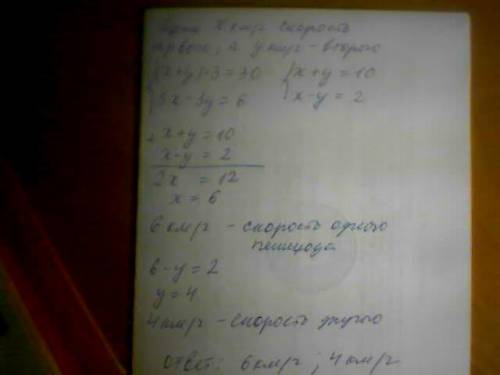 x км/ч скорость
первого, а y км/ч - второго
{(x+y)·3 = 30 {x+y = 10
{3x-3y = 6 {x-y = 2
+ x+y = 10
x-y = 2
2x = 12
x = 6
6 км/ч - скорость одного
пешехода
6-y = 2
y = 4
4 км/ч - скорость другого
Ответ: 6 км/ч ; 4 км/ч